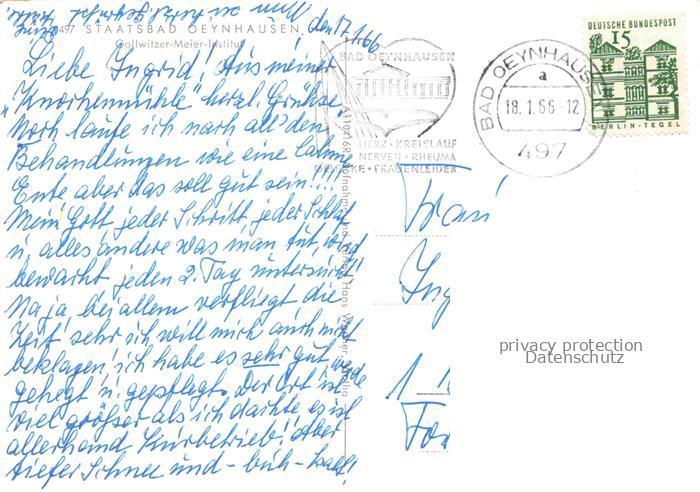 den 17.1.66
497 STAATSBAD OEYNHAUSEN,
Gollwitzer-Meier-Institut
Liebe Ingrid! Aus meiner
"Knochenmühle" herzl. Grüße.
Noch laufe ich nach all' den
Behandlungen wie eine lahme
Ente aber das soll gut sein!!!
Mein Gott jeder Schritt jeder Schlaf
u. alles andere was man tut, wird
bewacht jeden 2. Tag untersucht!
Na ja, bei allem verfliegt die
Zeit sehr ich will mich auch nicht
beklagen, ich habe es sehr gut, werde
gehegt u. gepflegt. Der Ort ist
viel größer als ich dachte es ist
allerhand Kurbetrieb! Aber
tiefer Schnee und - buh - kalt!
BAD OEYNHAUSEN
HERZ · KREISLAUF
NERVEN · RHEUMA
GELENKE · FRAUENLEIDEN
BAD OEYNHAUSEN
a
18.1.66-12
497
DEUTSCHE BUNDESPOST
15
BERLIN-TEGEL
Hans Wagner, Vlotho
Frau
Ing
1
privacy protection
Datenschutz